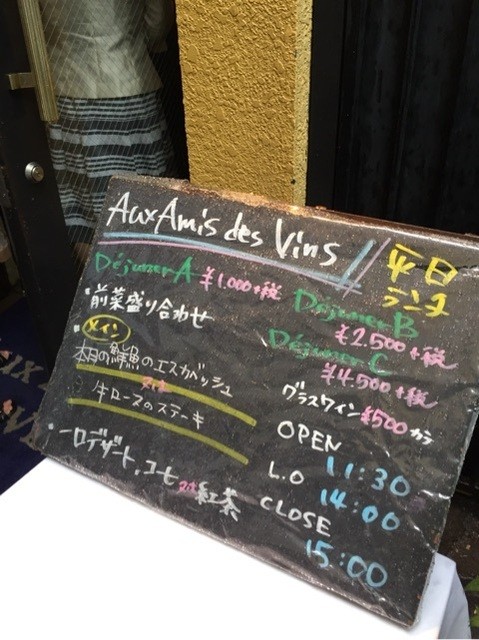 Aux Amis des Vins
平日
ランチ
Déjuner A ¥1.000+税
・前菜盛り合わせ
・メイン
本日の鮮魚のエスカベッシュ
又は
牛ロースのステーキ
・一口デザート、コーヒー又は紅茶
Déjuner B
¥2.500+税
Déjuner C
¥4.500+税
グラスワイン¥500から
OPEN
11:30
L.O
14:00
CLOSE
15:00